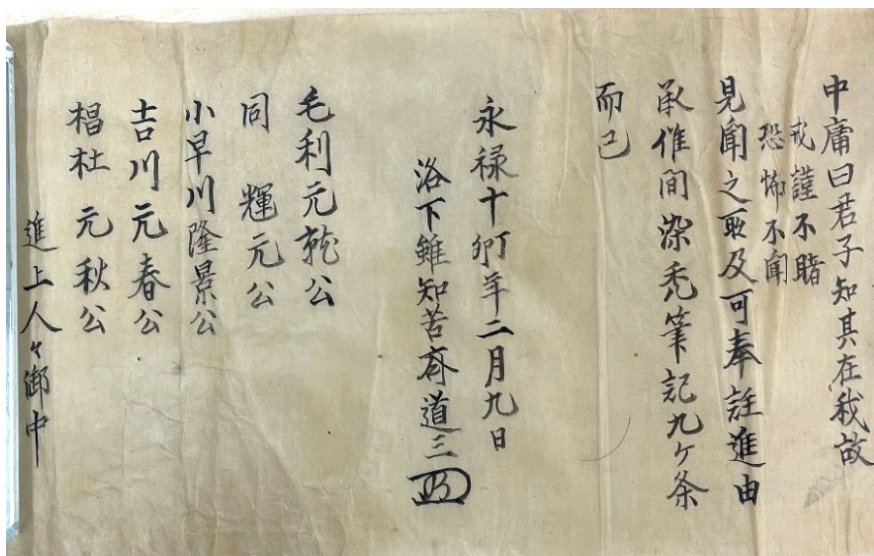 中庸曰君子知其在我故
戒謹不睹
恐怖不聞
見聞之所及可奉註進由
承催間染禿筆記九ケ条
而已
永禄十丁卯年二月九日
洛下雖知苦斎道三
毛利元就公
同 輝元公
小早川隆景公
吉川元春公
椙杜元秋公
進上人々御中